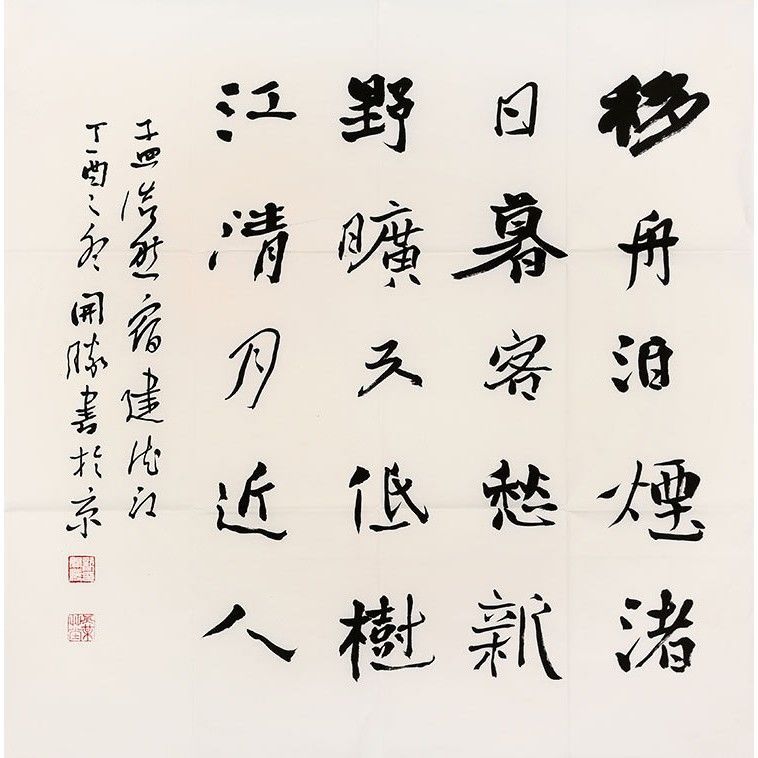 移舟泊煙渚
日暮客愁新
野曠天低樹
江清月近人
孟浩然宿建德江
丁酉之冬開勝書於京